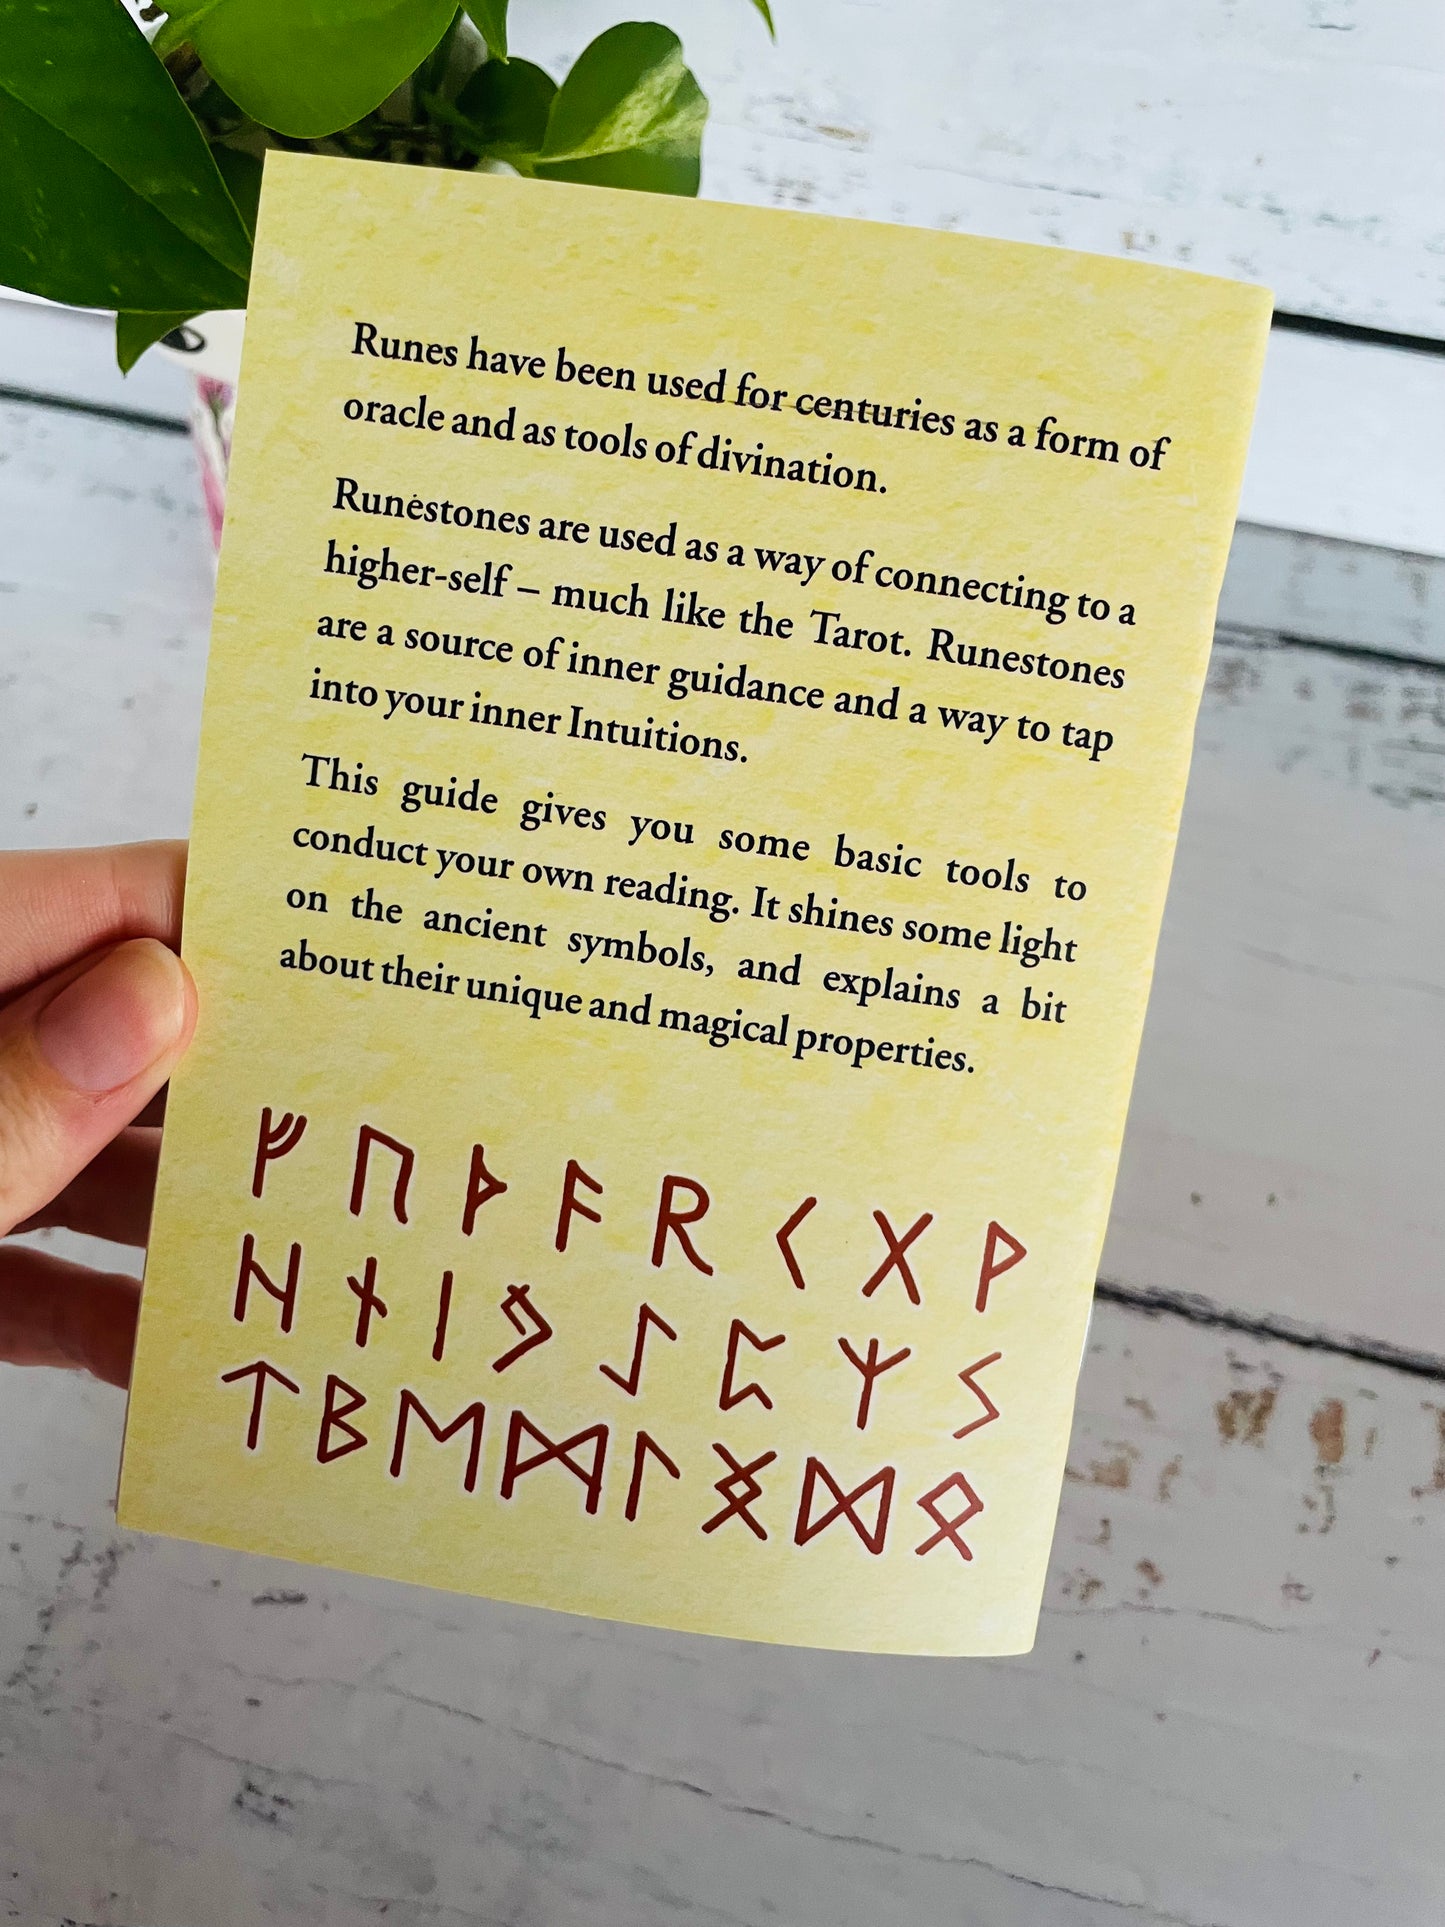 Runes have been used for centuries as a form of
oracle and as tools of divination.
Runestones are used as a way of connecting to a
higher-self – much like the Tarot. Runestones
are a source of inner guidance and a way to tap
into your inner Intuitions.
This guide gives you some basic tools to
conduct your own reading. It shines some light
on the ancient symbols, and explains a bit
about their unique and magical properties.
ᚠ ᚢ ᚦ ᚨ ᚱ ᚲ ᚷ ᚹ
ᚺ ᚾ ᛁ ᛃ ᛇ ᛈ ᛉ ᛊ
ᛏ ᛒ ᛖ ᛗ ᛚ ᛝ ᛞ ᛟ